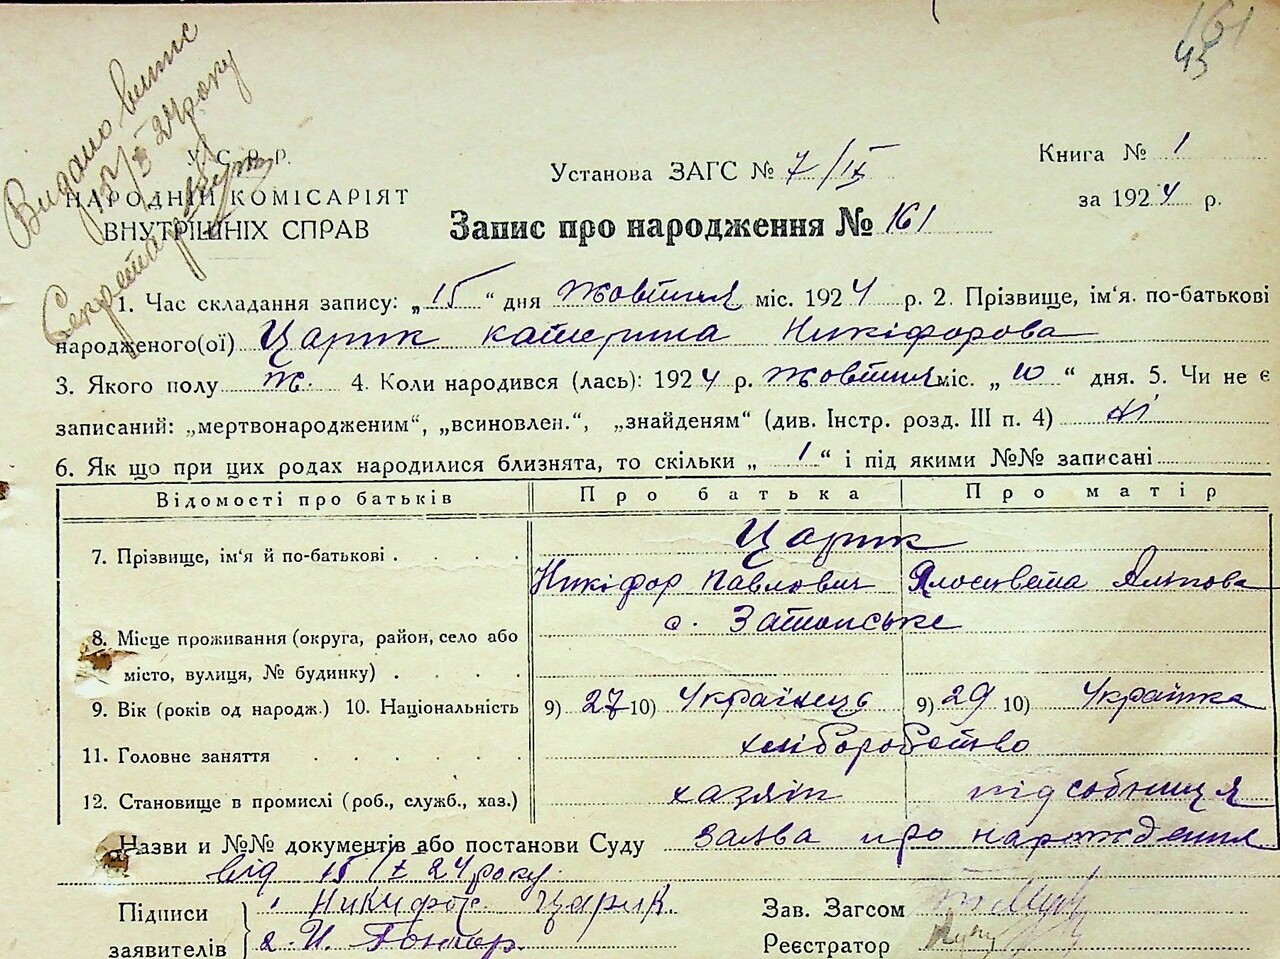 161
43
Видано витяг
15/X 24 року
Секретар
У. С. Р. Р.
НАРОДНІЙ КОМІСАРІЯТ
ВНУТРІШНІХ СПРАВ
Установа ЗАГС № 7/IX
Книга № 1
за 1924 р.
Запис про народження № 161
1. Час складання запису: „15“ дня Жовтня міс. 1924 р. 2. Прізвище, ім'я. по-батькові
народженого(ої) Царик катерина Никіфорова
3. Якого полу ж. 4. Коли народився (лась): 1924 р. Жовтня міс. „10“ дня. 5. Чи не є
записаний: „мертвонародженим“, „всиновлен.“, „знайденям“ (див. Інстр. розд. III п. 4) ні
6. Як що при цих родах народилися близнята, то скільки „1“ і під якими №№ записані
Відомості про батьків Про батька Про матір
7. Прізвище, ім'я й по-батькові . . . . Царик
Никіфор Павлович
8. Місце проживання (округа, район, село або с. Затонське
місто, вулиця, № будинку) . . . .
9. Вік (років од народж.) 10. Національність 9) 27 10) Українець 9) 29 10) Українка
11. Головне заняття . . . . . . хліборобство
12. Становище в промислі (роб., служб., хаз.) хазяін підсобниця
Назви и №№ документів або постанови Суду Заява про народження
від 15/X 24 року.
Підписи
заявителів
1 Никифор Царик.
2. И. Гончар.
Зав. Загсом
Реєстратор